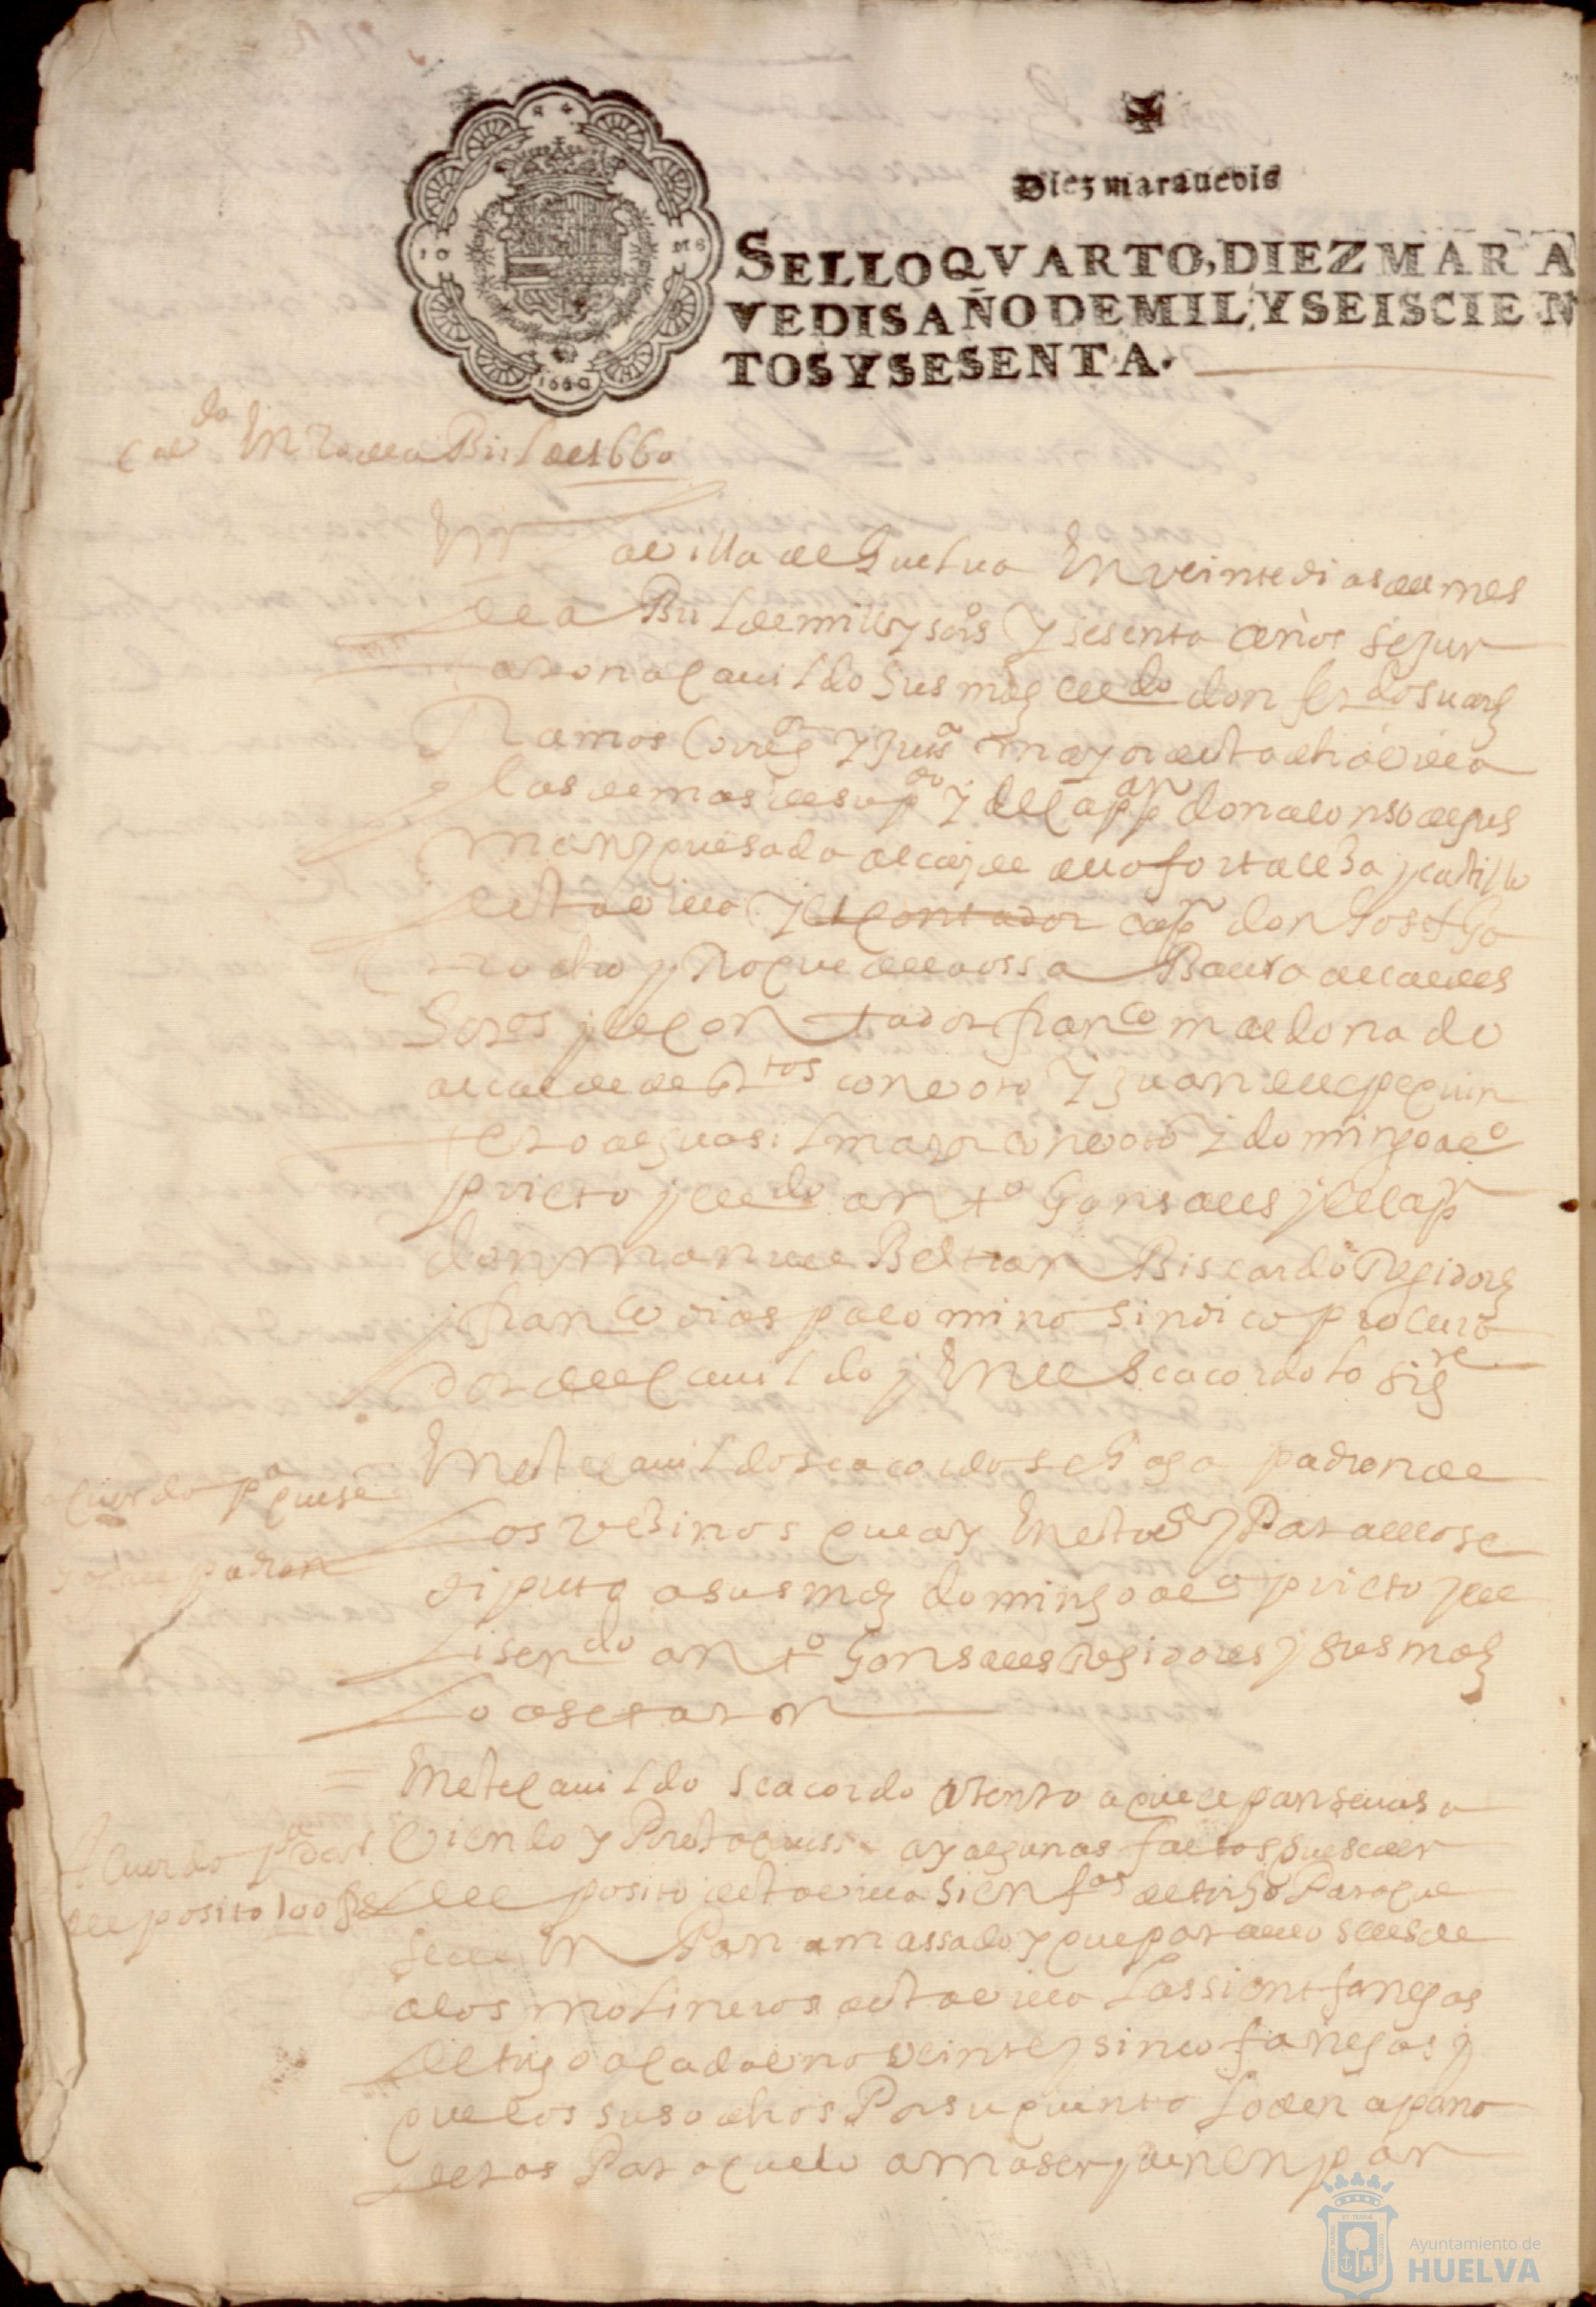 Diez marauedis
SELLO QVARTO, DIEZ MARA
VEDIS AÑO DE MIL Y SEISCIEN
TOS Y SESENTA.
1660
Caudo En 20 de aBril de 1660
En la villa de Guelua En veinte dias del mes
de aBril de mill y sos y sesenta años se jun
taron a cauildo sus mds el ldo don ferdo suarz
Ramos Corregr y Jusa mayor desta dha villa
y las demas de su pdo y el capp don alonso de gus
man quesada alcayde de la fortalesa y castillo
desta villa y el contador capp don Joseph
y Roque de la ossa Bauta alcaldes
y el contador franco maldonado
alcalde de con voto y Juan
alguasil mayor con voto y domingo alo
prieto y el ldo anto Gonsales y el capn
don manuel Beltran Biscardo Regidors
y franco dias palomino sindico procura
dor del cauildo y En el se acordo lo sige
En este cauildo se acordo se haga padron de
los vesinos que ay En esta va y Para ello se
diputa a sus mds domingo alo prieto y el
lisendo anto Gonsales Regidores y sus mds
lo asetaron
acuerdo pa que se
padron
= En este cauildo se acordo atento a que el pan se uasu
biendo y Por esta caussa ay algunas faltas que se den
del posito desta villa sien fas de trigo Para que
se de En Pan amassado y que para ello se les de
a los molineros desta villa las sient fanegas
de trigo a cada uno veinte y sinco fanegas y
que los susodhos Por su quenta lo den a pana
deras Para que lo amasen y den en pan
Acuerdo pa dar
del posito 100 fs
Ayuntamiento de
HUELVA